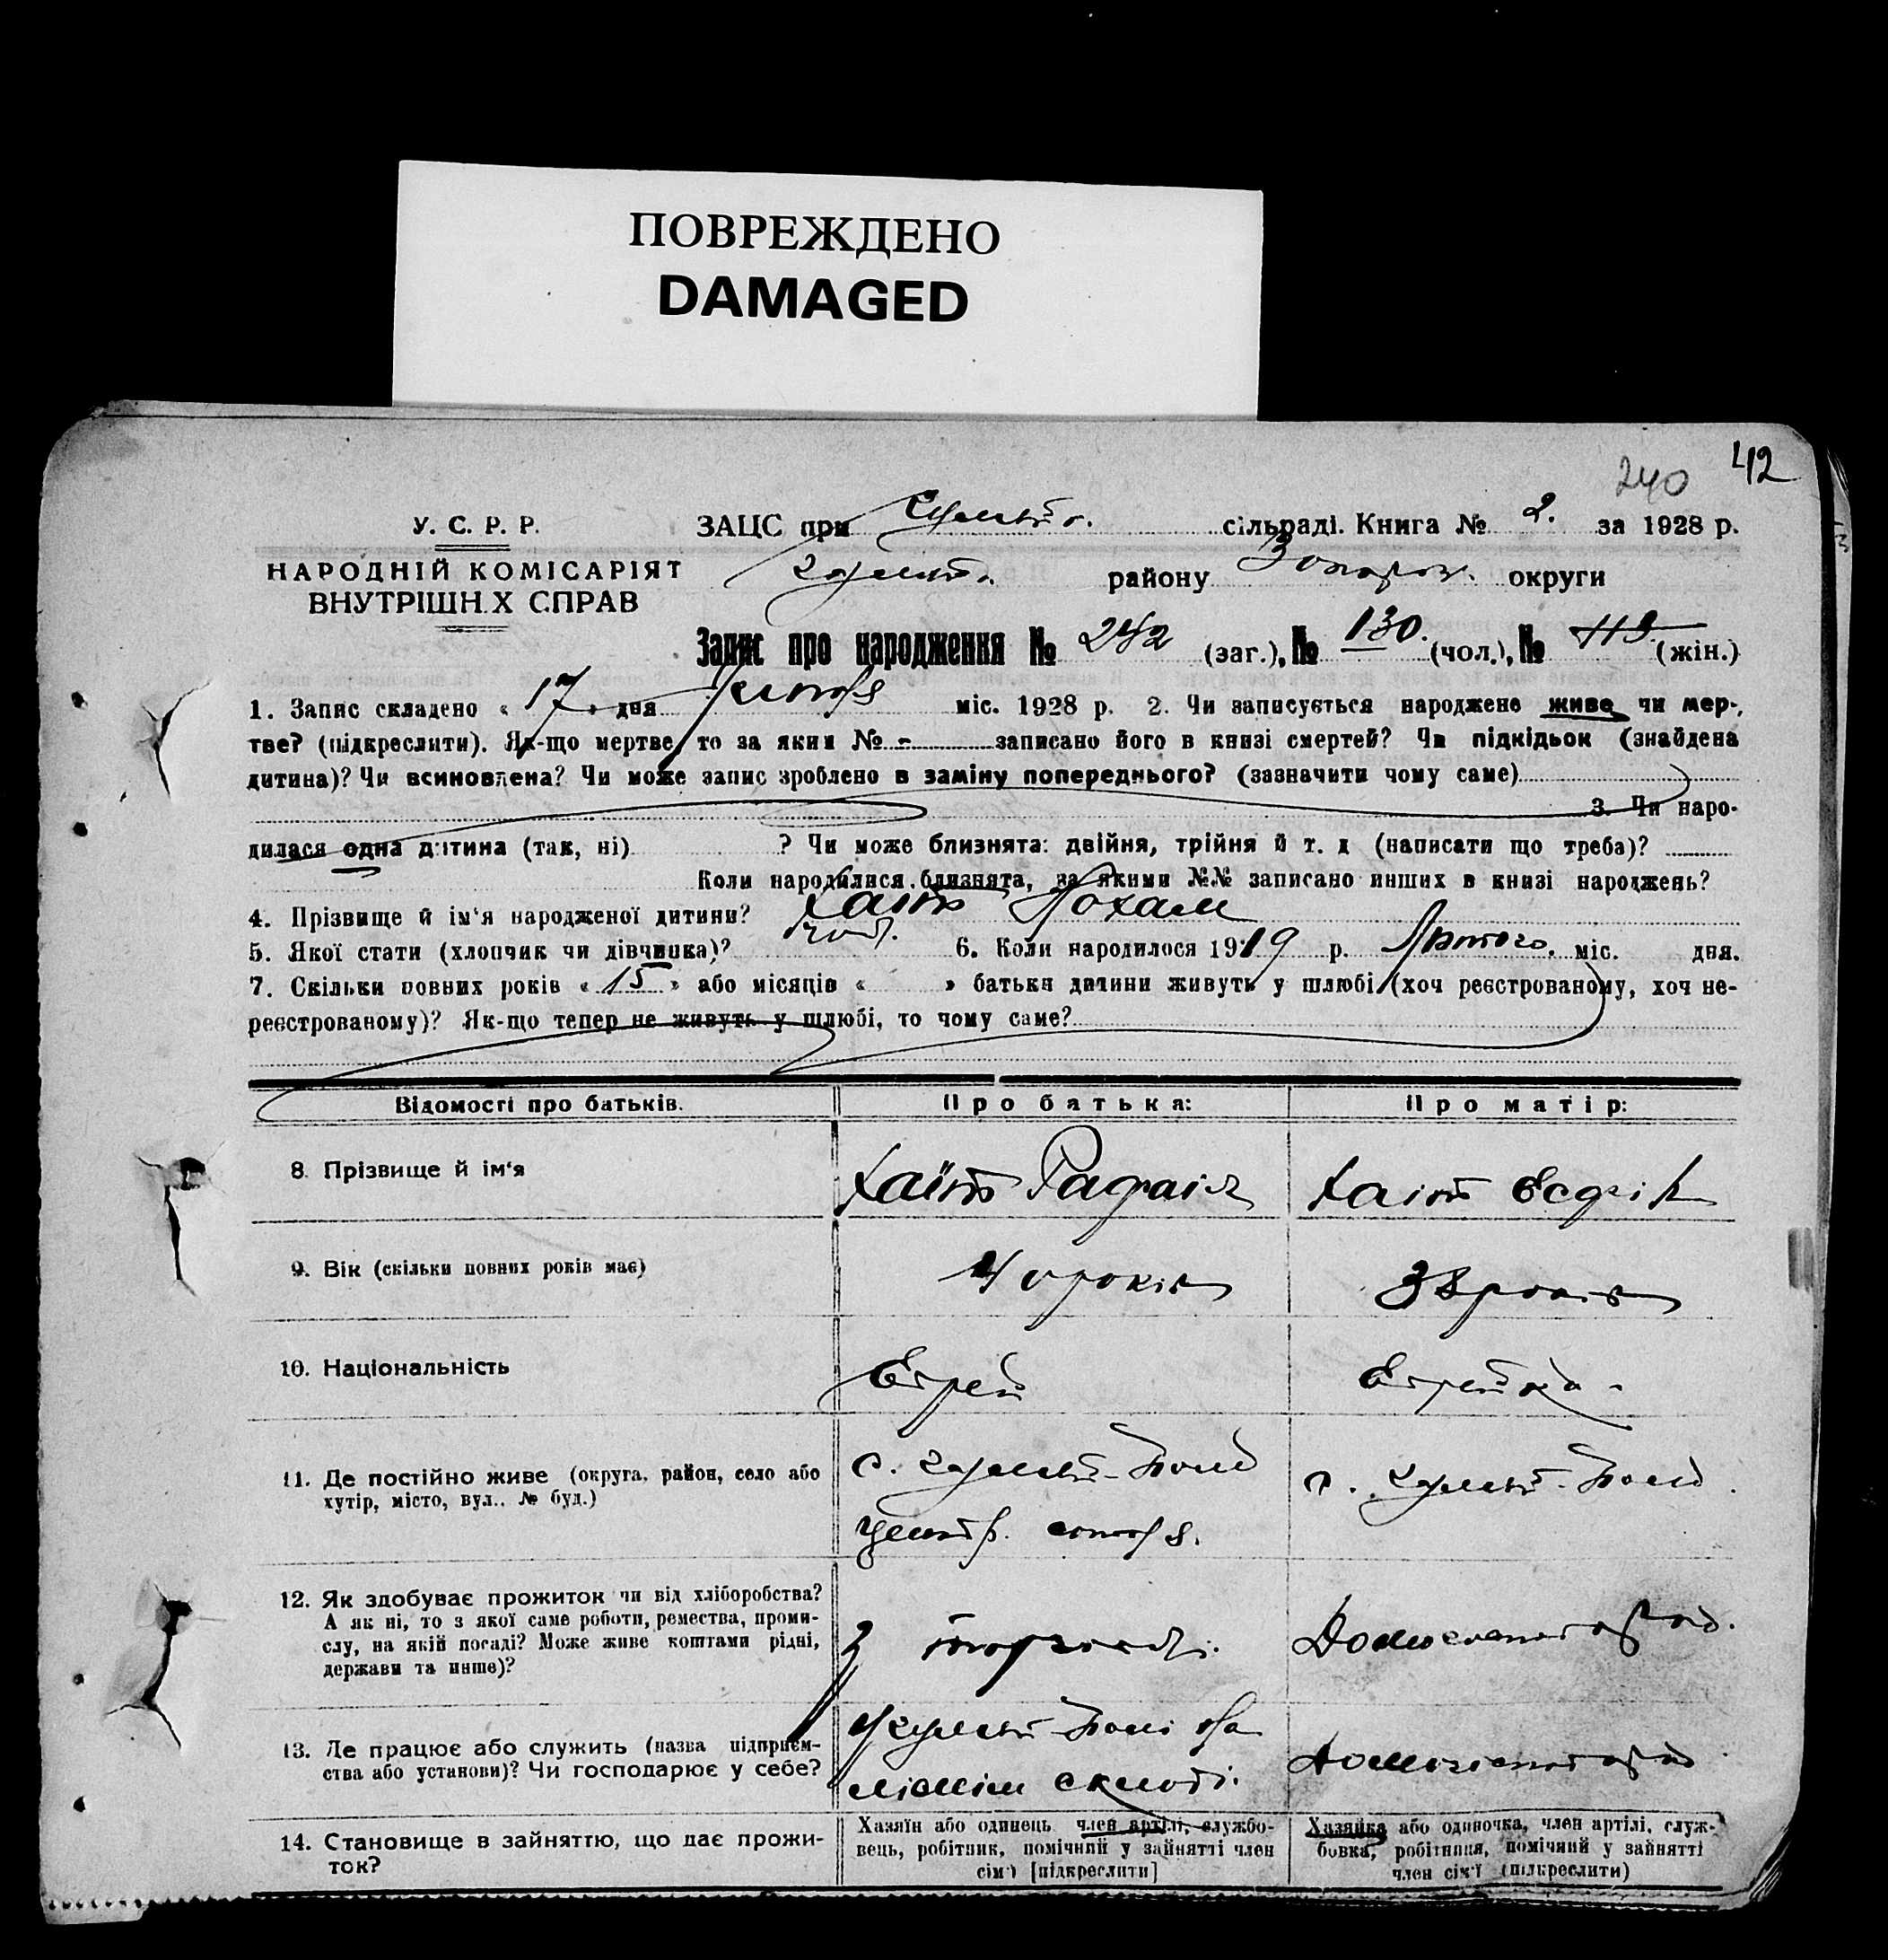 ПОВРЕЖДЕНО
DAMAGED
42
240
У. С. Р. Р.
НАРОДНІЙ КОМІСАРІЯТ
ВНУТРІШН.Х СПРАВ
ЗАЦС при сільраді. Книга № 2. за 1928 р.
району округи
Запис про народження № 242 (заг.), № 130. (чол.), № 113 (жін.)
1. Запис складено « 17 » дня міс. 1928 р. 2. Чи записується народжене живе чи мер-
тве? (підкреслити). Як-що мертве, то за яким № - записано його в книзі смертей? Чи підкідьок (знайдена
дитина)? Чи всиновлена? Чи може запис зроблено в заміну попереднього? (зазначити чому саме)
3. Чи наро-
дилася одна дитина (так, ні) ? Чи може близнята: двійня, трійня й т. д (написати що треба)?
Коли народилися близнята, за якими №№ записано инших в книзі народжень?
4. Прізвище й ім'я народженої дитини? Хаїт
5. Якої стати (хлопчик чи дівчинка)? 6. Коли народилося 1919 р. Лютого. міс. дня.
7. Скільки повних років « 15 » або місяців « » батьки дитини живуть у шлюбі (хоч реєстрованому, хоч не-
реєстрованому)? Як-що тепер не живуть у шлюбі, то чому саме?
Відомості про батьків.
Про батька:
Про матір:
8. Прізвище й ім'я
Хаїт Рафаіл
Хаіт
9. Вік (скільки повних років має)
40 років
38 років
10. Національність
Єврей
Єврейка
11. Де постійно живе (округа, район, село або
хутір, місто, вул.. № буд.)
с. Гуляй-Поле
с. Гуляй-Поле
12. Як здобуває прожиток чи від хліборобства?
А як ні, то з якої саме роботи, ремества, проми-
слу, на якій посаді? Може живе коштами рідні,
держави та инше)?
З торговлі.
13. Де працює або служить (назва підприєм-
ства або установи)? Чи господарює у себе?
14. Становище в зайняттю, що дає прожи-
ток?
Хазяїн або одинець член артілі, службо-
вець, робітник, помічний у зайнятті член
сім'ї [підкреслити]
Хазяйка або одиночка, член артілі, служ-
бовка, робітниця, помічний у зайнятті
член сім'ї (підкреслити)